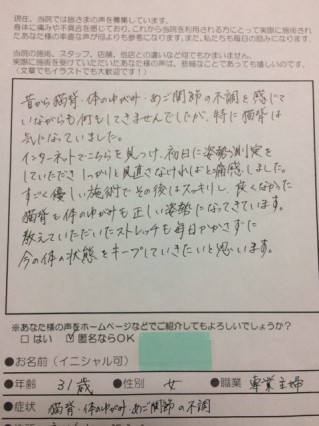 現在、当院では皆さまの声を募集しています。
身体に痛みや不具合を感じており、これから当院を利用される方にとって実際に施術された
あなた様の率直な声が何よりも参考になります。また、私たちも毎日の励みになります。
当院の施術、スタッフ、店舗、他店との違いなど何でもかまいません。
実際に施術を受けていただいたあなた様の声は、些細なことであっても嬉しいのです。
(文章でもイラストでも大歓迎です!)
昔から猫背・体のゆがみ・あご関節の不調を感じて
いながらも何もしてきませんでしたが、特に猫背は
気になっていました。
インターネットでこちらを見つけ、初日に姿勢の測定を
していただき しっかりと見直さなければと痛感しました。
すごく優しい施術でその後はスッキリし、長くなかった
猫背も体のゆがみも正しい姿勢になってきています。
教えていただいたストレッチも毎日かかさずに
今の体の状態をキープしていきたいと思います。
※あなた様の声をホームページなどでご紹介してもよろしいでしょうか?
□はい ☑匿名ならOK
●お名前(イニシャル可)
●年齢 31歳 ●性別 女 ●職業 専業主婦
●症状 猫背・体のゆがみ・あご関節の不調